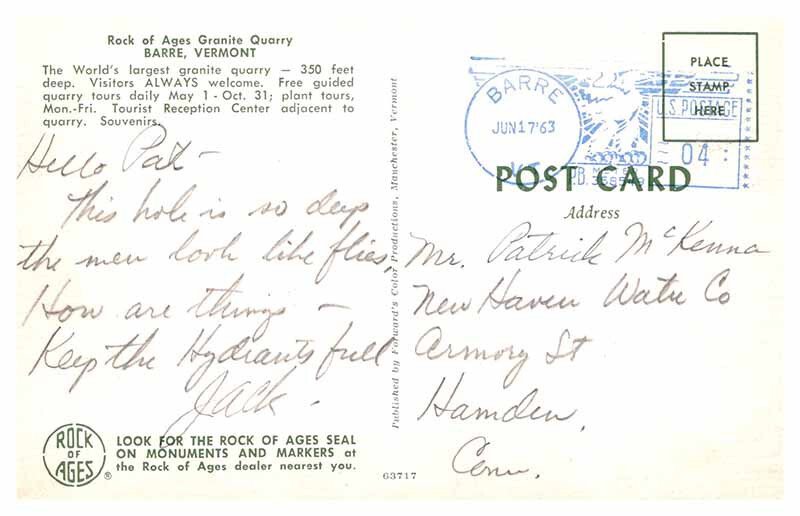 Rock of Ages Granite Quarry
BARRE, VERMONT
The World's largest granite quarry — 350 feet
deep. Visitors ALWAYS welcome. Free guided
quarry tours daily May 1 - Oct. 31; plant tours,
Mon.-Fri. Tourist Reception Center adjacent to
quarry. Souvenirs.
Hello Pat —
This hole is so deep
the men look like flies,
How are things —
Keep the Hydrants full
JACK.
ROCK
OF
AGES
®
LOOK FOR THE ROCK OF AGES SEAL
ON MONUMENTS AND MARKERS at
the Rock of Ages dealer nearest you.
Published by Forward's Color Productions, Manchester, Vermont
63717
BARRE
JUN 17 '63
VT.
U.S. POSTAGE
04
P.B.
PLACE
STAMP
HERE
POST CARD
Address
Mr. Patrick McKenna
New Haven Water Co
Armory St
Hamden,
Conn.